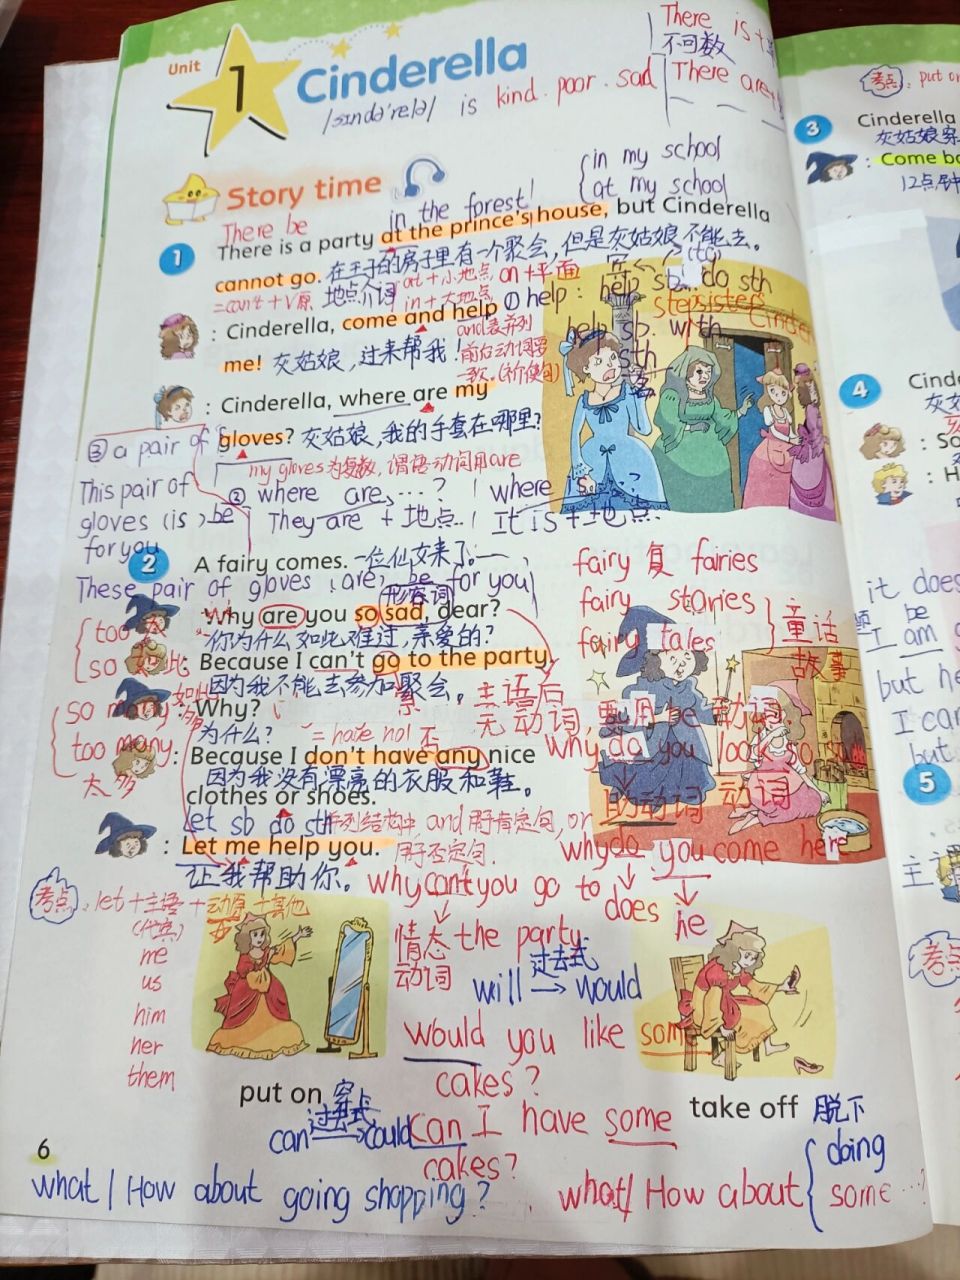 Unit
1
Cinderella
/sɪndə'relə/ is kind. poor. sad
There is+
不可数
There are+
Story time
in my school
at my school
There be
in the forest
1
There is a party at the prince's house, but Cinderella
cannot go. 在王子的房子里有一个聚会，但是灰姑娘不能去。
=can't+V原 地点介词
at+小地点 on+平面
in+大地点
① help: help sb. do sth
help sb. with
sth
stepsisters
: Cinderella, come and help
me! 灰姑娘，过来帮我！
and表并列
前后动词要
一致.
: Cinderella, where are my
gloves? 灰姑娘，我的手套在哪里？
③ a pair of
my gloves为复数，谓语动词用are
This pair of
gloves (is) be
for you
② where are ...?
They are + 地点..
where is ?
It is + 地点.
2
A fairy comes. 一位仙女来了.
These pair of gloves (are) be for you
形容词
fairy 复 fairies
fairy stories
fairy tales
童话
故事
: Why are you so sad, dear?
你为什么如此难过，亲爱的？
too 太
so 如此
: Because I can't go to the party.
因为我不能去参加聚会。
主语后
无动词，要用be动词.
so many 如此多
too many
太多
: Why?
为什么？
= have not
: Because I don't have any nice
clothes or shoes.
因为我没有漂亮的衣服和鞋。
why do you look so
助动词 动词
let sb do sth
并列结构中，and用于肯定句，or
用于否定句.
: Let me help you.
让我帮助你。
why do you come here
does he
考点: let+主语+动原+其他
me
us
him
her
them
why can't you go to
the party
情态
动词
will → would
过去式
would you like some
cakes?
put on 穿上
take off 脱下
can → could
过去式
Can I have some
cakes?
6
what / How about going shopping?
what / How about
doing
some...?
考点: put on
3
Cinderella
灰姑娘穿
: Come ba
12点钟
4
Cinde
灰姑
: So
: H
it does
be
I am
but he
I can
but
5
主语
考点